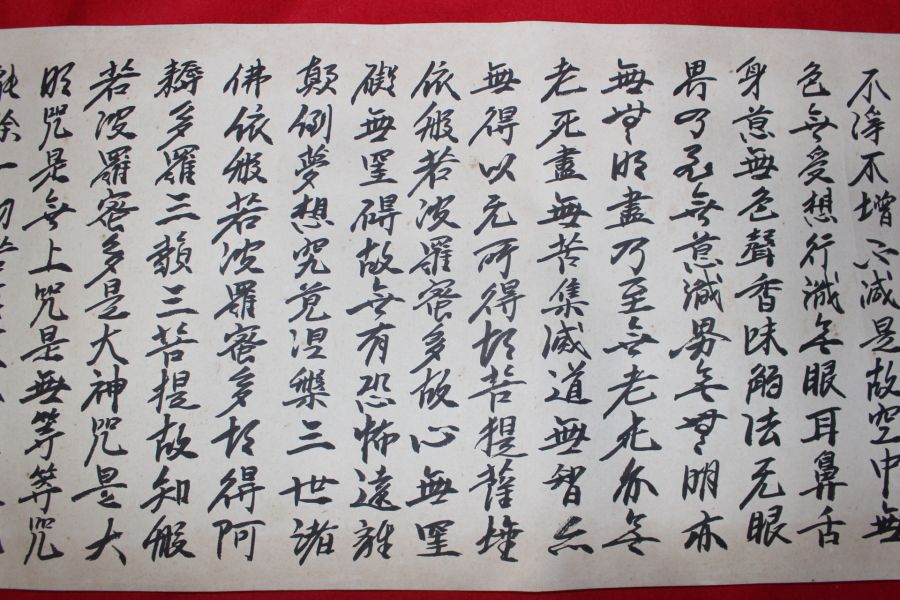 不淨不增不減是故空中無
色無受想行識無眼耳鼻舌
身意無色聲香味觸法无眼
界乃至無意識界無無明亦
無無明盡乃至無老死亦無
老死盡無苦集滅道無智亦
無得以无所得故菩提薩埵
依般若波羅蜜多故心無罣
礙無罣碍故無有恐怖遠離
顛倒夢想究竟涅槃三世諸
佛依般若波羅蜜多故得阿
耨多羅三藐三菩提故知般
若波羅蜜多是大神咒是大
明咒是無上咒是無等等咒
能除一切苦